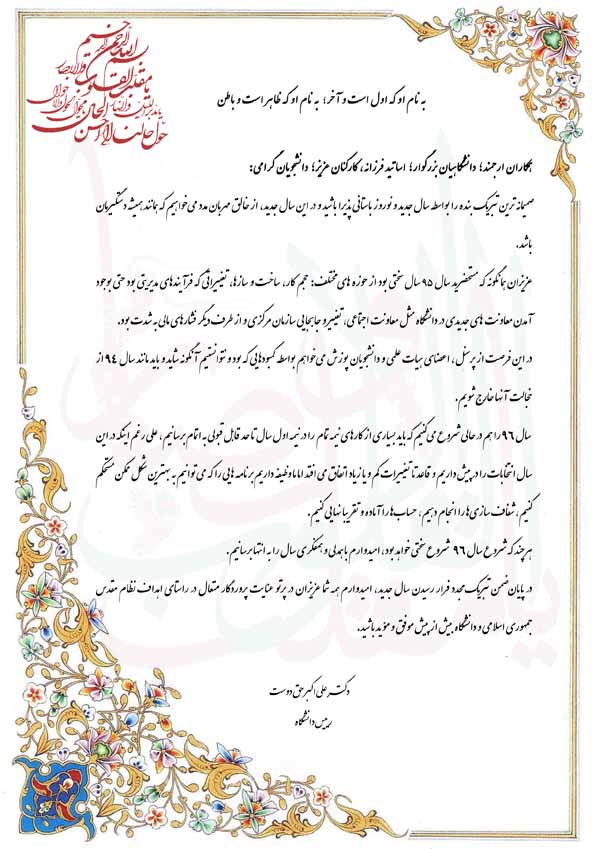 بسم الله الرحمن الرحیم
یا مقلب القلوب والابصار
یا مدبر اللیل والنهار
یا محول الحول والاحوال
حول حالنا الی احسن الحال
به نام او که اول است و آخر؛ به نام او که ظاهر است و باطن
همکاران ارجمند؛ دانشگاهیان بزرگوار؛ اساتید فرزانه، کارکنان عزیز؛ دانشجویان گرامی:
صمیمانه ترین تبریک بنده را بواسطه سال جدید و نوروز باستانی پذیرا باشید و در این سال جدید، از خالق مهربان مدد می‌خواهیم که همانند همیشه دستگیرمان
باشد.
عزیزان همانگونه که مستحضرید سال ۹۵ سال سختی بود از حوزه های مختلف: حجم کار، ساخت و سازها، تغییراتی که فرآیندهای مدیریتی بود حتی بوجود
آمدن معاونت های جدیدی در دانشگاه مثل معاونت اجتماعی، تغییر و جابجایی سازمان مرکزی و از طرف دیگر فشارهای مالی به شدت بود.
در این فرصت از پرسنل، اعضای هیات علمی و دانشجویان پوزش می‌خواهم بواسطه کمبودهایی که بود و نتوانستیم آنگونه شاید و باید مانند سال ۹۴ از
خجالت آنها خارج شویم.
سال ۹۶ را هم در حالی شروع می‌کنیم که باید بسیاری از کارهای نیمه تمام را در نیمه اول سال تا حد قابل قبولی به اتمام برسانیم، علی رغم اینکه در این
سال انتخابات را در پیش داریم و قاعدتا تغییرات کم و یا زیاد اتفاق می افتد اما ما وظیفه داریم برنامه هایی را که می توانیم به بهترین شکل ممکن مستحکم
کنیم، شفاف سازی‌ها را انجام دهیم، حساب‌ها را آماده و تقریبا نهایی کنیم.
هر چند که شروع سال ۹۶ شروع سختی خواهد بود، امیدوارم با همدلی و همفکری سال را به انتها برسانیم.
در پایان ضمن تبریک مجدد فرار رسیدن سال جدید، امیدوارم همه شما عزیزان در پرتو عنایت پروردگار متعال در راستای اهداف نظام مقدس
جمهوری اسلامی و دانشگاه بیش از پیش موفق و مؤید باشید.
دکتر علی اکبر حق دوست
رییس دانشگاه